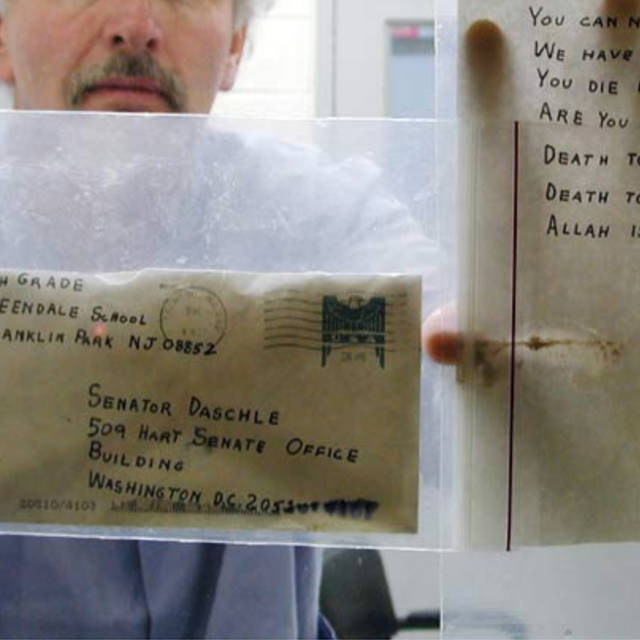 H GRADE
EENDALE SCHOOL
ANKLIN PARK NJ 08852
SENATOR DASCHLE
509 HART SENATE OFFICE
BUILDING
WASHINGTON D.C. 2051
20510/4103
YOU CAN N
WE HAVE
YOU DIE
ARE YOU
DEATH TO
DEATH TO
ALLAH IS